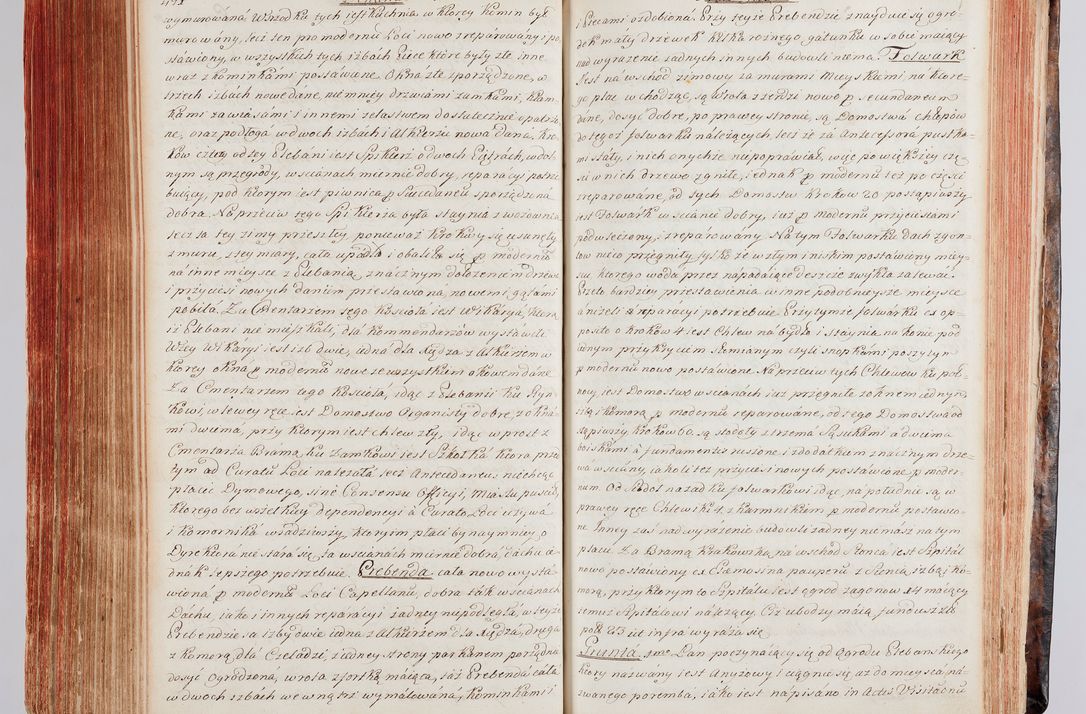 wymurowana Wsrodku tych iest kuchnia w ktorey Komin był
murowany, lecz ten pro modernu Loci nowo zreparowany i po,
stawiony, w wszystkich tych izbach Piece ktore były złe inne
wraz z kominkami postawane. Okna złe sporządzone, a
trzech izbach nowe dane, niemniey drzwiami zamkami, klam,
kami zawiasami i innemi zelastwem dostatecznie opatrzo,
ne, oraz podłoga w dwoch izbach i Alkierzu nowa dana, Kro,
kow od tey Plebani iest Spiklerz o dwoch Piętrach, w dol,
nym są przegrody, w scianach miernie dobry, reparacyi potrze
buiący, pod ktorym iest piwnica sporządzona
dobra. Naprzeciw tego Spiklerza była staynia z wozownią
lecz ta tey zimy przeszłey poniewaz krokwy się usuneły
z muru, z tey miary, cała upadła i obaliła się p modernu
na inne mieysce z Plebanią, znacznym dołozeniem drzewa
i przyciesi nowych danim przestawiona, nowemi gątami
pobita. Za Cmentarzem tego Kościoła iest Wikarya, ktora
iz Plebani nie mieszkali, dla Kommendarzow wystawili
W tey Wikaryi iest izb dwie, iedna dla Xiędza z Alkierzem w
ktorey okna p modernu nowe ze wszystkim okowem dane
Za Cmentarzem tego Kościoła, idąc z Plebanii ku Ryn,
kowi, w lewey ręce iest Domostwo Organisty dobre, z okna,
mi dwuma, przy ktorym iest chlew zły, idąc wprost z
Cmentarza Bramą ku Zamkowi iest Szkołka ktora prze
tym ad Curatu Loci nalezała lecz Antecedaneus niechcąc
płacic Dymowego, sine Consensu Officyi, Miastu puscił,
ktorego bez wszelkiey dependencyi à Curato Loci uzywa
i komornika wsadziwszy, ktorym płaci bynaymniey o
Dyrektora nie stara się, ta w scianach miernie dobra, dachu a
dnak lepszego potrzebuie. Prebenda cała nowo wysta,
wiona p modernu Loci Capellanu, dobra tak w scianach
Dachu, iako i innych reparacyi zadney niepodlegla, w teyze
Prebendzie są izby dwie iedna z Alkierzem dla Xiędza, druga
z komorą dla Czeladzi, z iedney strony parkanem porządnie
dosyć Ogrodzona, wrota z fortką maiąca, taż Prebenda cała
w dwoch izbach wewnątrz wymalowana, Kominkami i
Piecami ozdobiona. Przy teyze Prebendzie znayduie się ogro,
dek mały drzewek kilka roznego, gatunku w sobie maiący
nad wyrazenie zadnych innych budowli niema. Folwark
Iest na wschod zimowy za murami Mieyskiemi na ktore,
go plac wchodząc, są Wrota z zerdzi nowo p secundaneum
dane, dosyć dobre, po prawey stronie, są Domostwa chłopow
do tegoz folwarku nalezących, lecz iz za Antecessora pustka,
mi stały, i nich onychze niepoprawiał, więc po większey czę
sci w nich drzewo zgniłe, iednak p modernu tez po części
zreparowane, od tych Domostw krokow 20 postąpiwszy
iest Folwark w scianie dobry, iuz p modernu przyciesiami
podwleczony, i zreparowany. Na tym Folwarku dach zgon,
tow nieco przegniły, tylko ze w złym i niskim postawiony miey,
scu, ktorego woda przez napadaiące deszcze zwykła zalewać.
Przeto bardziey przestawienia w inne podobnieysze mieysce
anizeli reparacyi potrzebuie Przytymze folwarku ex op,
posito o krokow 4 iest Chlew na bydło i staynia na konie pod
iednym przykryciem słomianym czyli snopkami poszytym
p modernu nowo postawione. Naprzeciw tych Chlewow ku puł,
nocy, iest Domostwo w scianach iuz przegniłe z oknem iednym
izbą i komorą p modernu reparowane, od tego Domostwa od
stąpiwszy krokow 60. są stodoły z trzema Sąsiekami a dwiema
boiskami à fundamentis ruszone i z dodatkiem znacznym drze,
wa w sciany, iako i tez przyciesi nowych postawione p moder,
num. Od stodoł nazad ku folwarkowi idąc, na południe są, w
prawey ręce Chlewiki 4. z Karmnikiem p modernu postawio,
ne Inney zas nad wyrazenie budowli zadney niemasz na tym
placu. Za Bramą Krakowską na wschod Słonca iest Szpital
nowo postawiony ex Eleemosina pauperu z Sienią izbą i ko,
morą, przy ktorym to Szpitalu iest ogrod zagonow 14 maiący
temuz Szpitalowi nalezący. Ci ubodzy maią fundusz złp
pols 213 iuz infra wyraza się
Grunta. Pan poczynaiący się od Ogrodu Plebanskiego
ktory nazwany iest Anyzowy i ciągnie się, az do mieysca na,
zwanego poremba, iako iest napisano in Actis Visitationu